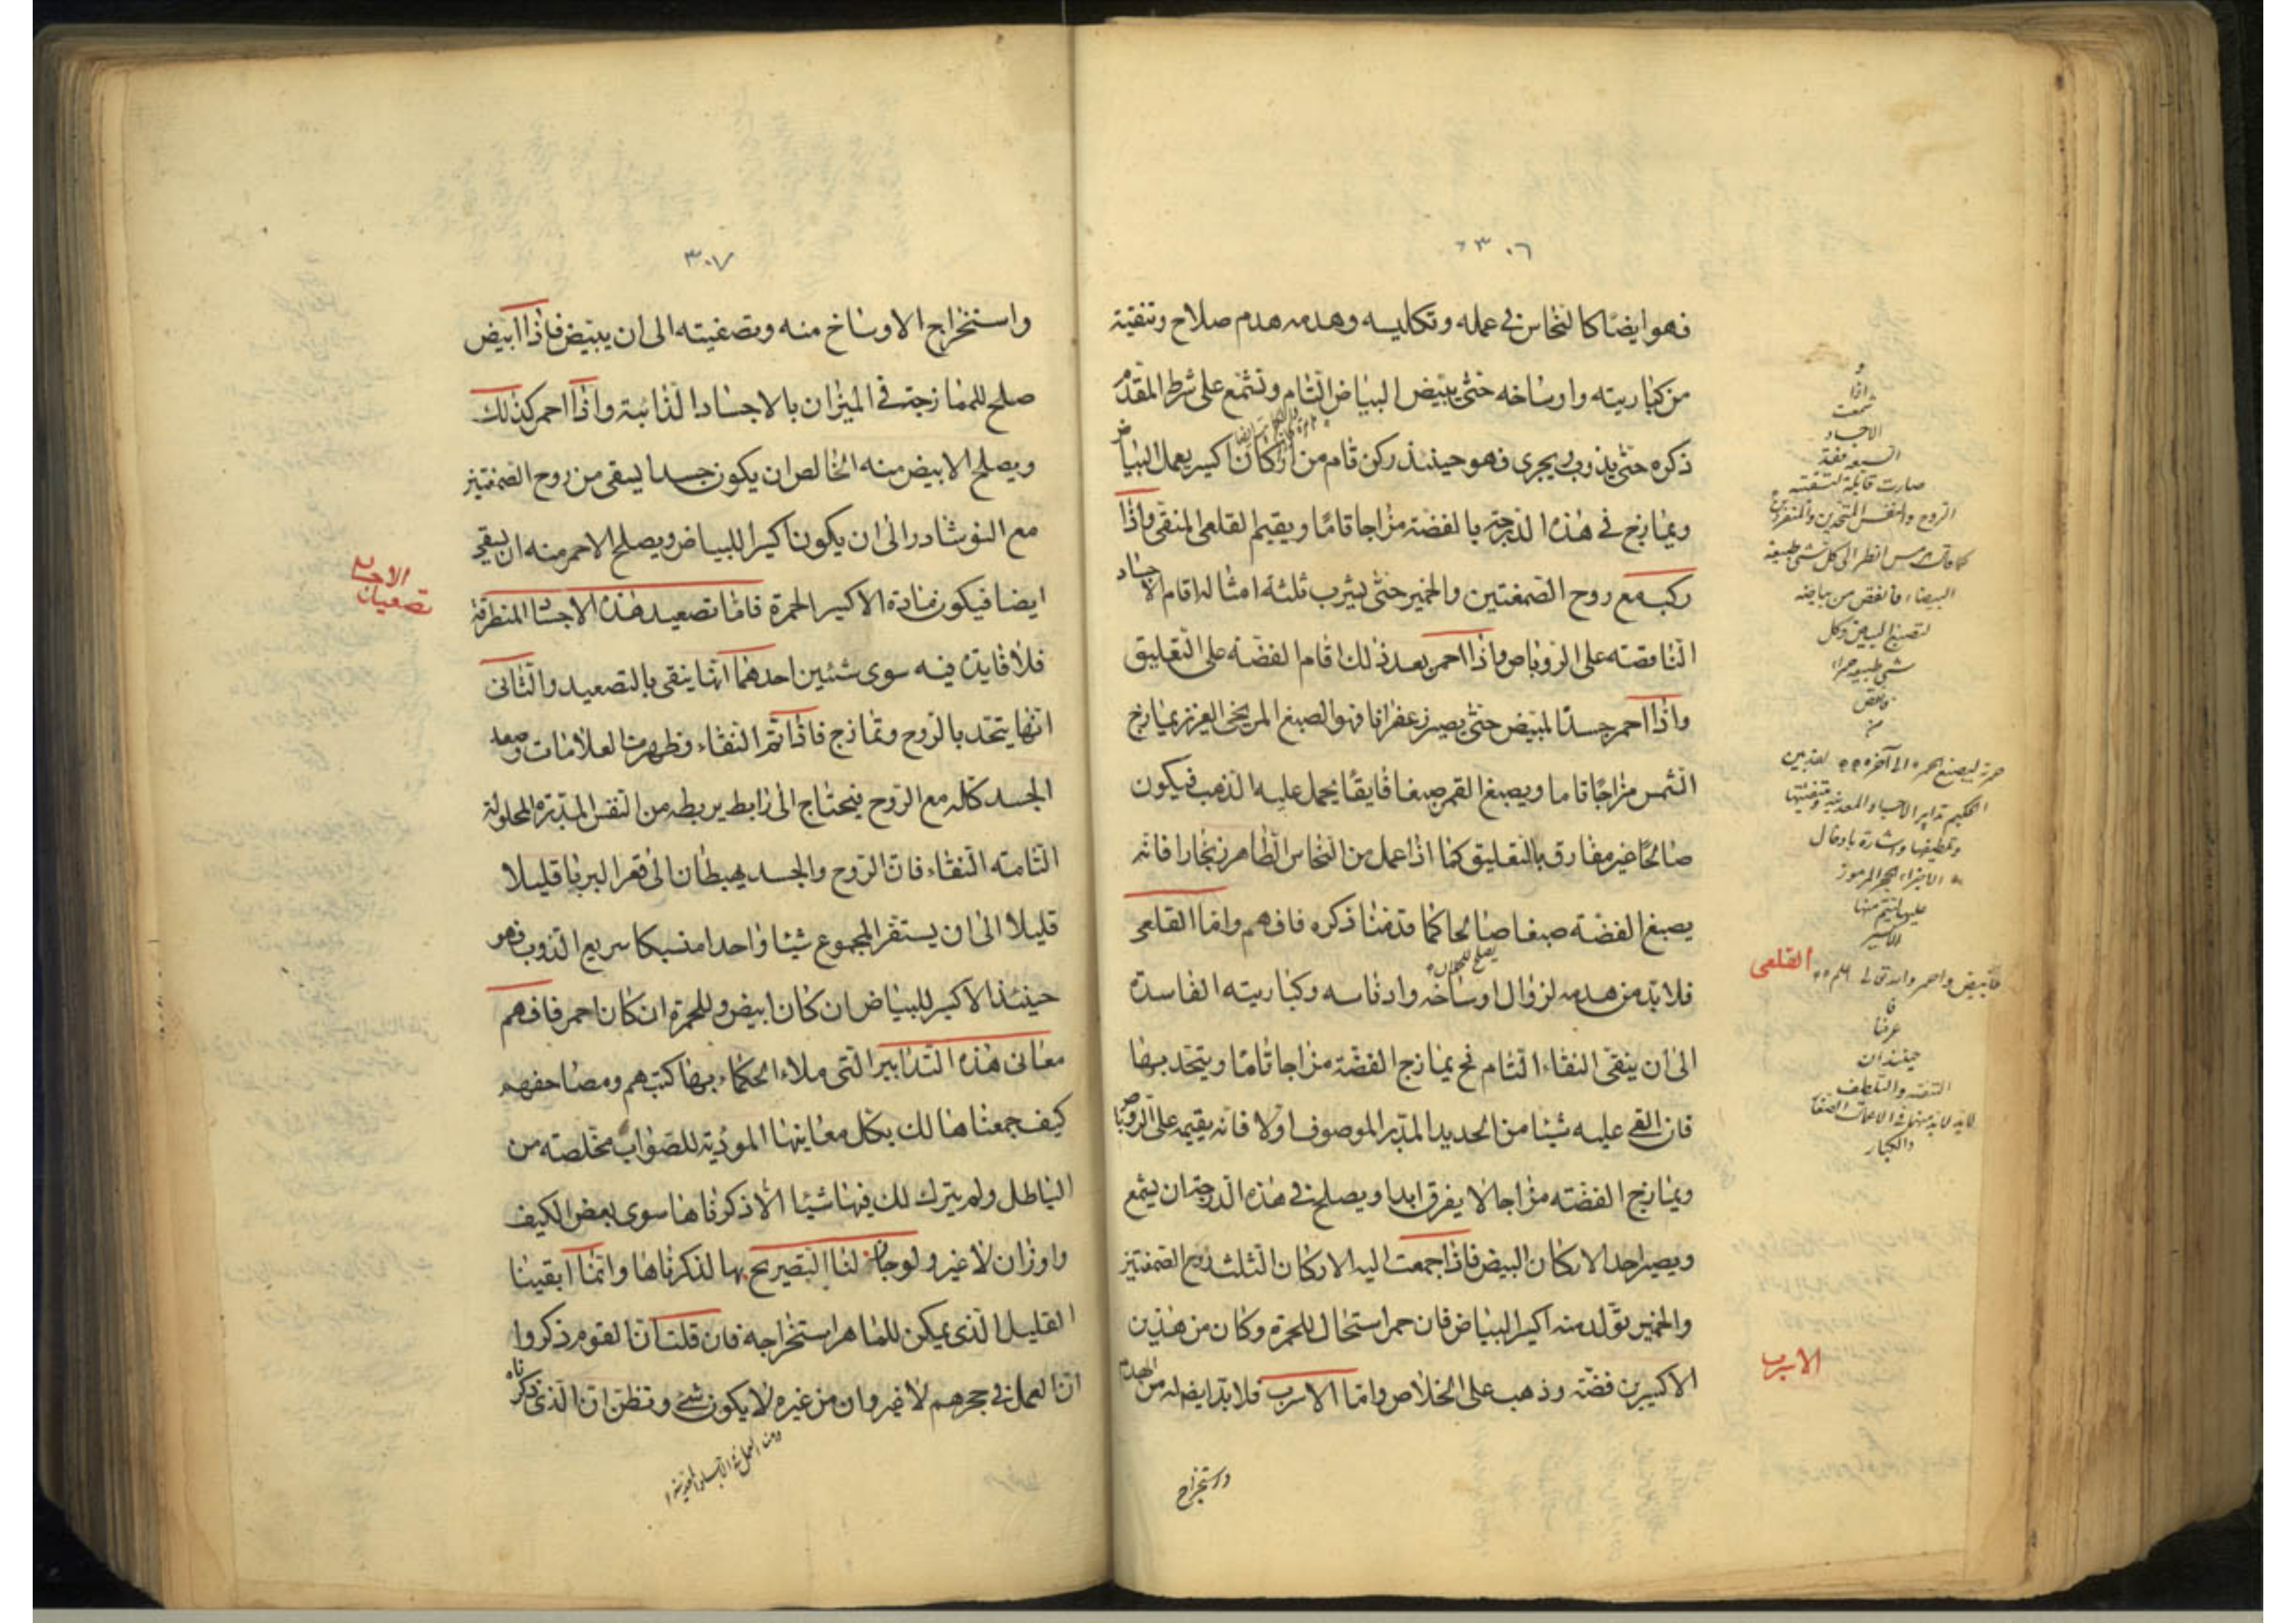 ٣٠٦
فهو ايضا كالنحاس في عمله وتكليسه وهدمه هدم صلاح وتنقية
من كباريته واوساخه حتى يبيض البياض التام وتشمع على شرط المقدم
ذكره حتى يذوب ويجرى فهو حينئذ ركن قام من اركان اكسير يعمل البياض
ويمازج في هذه الدرجة بالفضة مزاجا تاما ويقيم القلعى المنقى واذا
ركب مع روح الصمغتين والخمير حتى يشرب ثلثة امثاله اقام الاجساد
الناقصة على الروباص واذا احمر بعد ذلك اقام الفضة على التعليق
واذا احمر جسدنا المبيض حتى يصير زعفرانا فهو الصبغ المريخى العزيز يمازج
الشمس مزاجا تاما ويصبغ القمر صبغا فايقا يحمل عليه الذهب فيكون
صالحا غير مفارق بالتعليق كما اذا عمل من النحاس الطاهر زنجارا فانه
يصبغ الفضة صبغا صالحا كما قدمنا ذكره فافهم واما القلعى
فلابد من هدمه لزوال اوساخه وادناسه وكباريته الفاسدة
الى ان ينقى النقاء التام فح يمازج الفضة مزاجا تاما ويتحد بها
فان القى عليه شيئا من الحديد المدبر الموصوف اولا فانه يقيمه على الروباص
ويمازج الفضة مزاجا لا يفرق ابدا ويصلح في هذه الدرجة ان يشمع
ويصير احد الاركان البيض فاذا جمعت اليه الاركان الثلث روح الصمغتين
والخمير تولد منه اكسير البياض فان حمر استحال للحمرة وكان من هذين
الاكسيرين فضة وذهب على الخلاص واما الاسرب فلابد ايضا له من الهدم
واستخراج
و
اذا
شمعت
الاجساد
السبعة
صارت قابلة
الروح والنفس المتحدين
انظر الى كل شى طبيعة
البيضاء فانقص من بياضه
لتصبغ البياض وكل
شى طبيعته حمراء
فانقص
من
حمرته ليصبغ الحمرة الى آخره
الحكيم تدابير الاجساد المعدنية
القلعى
فابيض واحمر والله تعالى اعلم
عرفنا
حينئذ ان
والكبار
الاسرب
٣٠٧
واستخراج الاوساخ منه وتصفيته الى ان يبيض فاذا ابيض
صلح للممازجة في الميزان بالاجساد الذائبة واذا احمر كذلك
ويصلح الابيض منه الخالص ان يكون جسدا يسقى من روح الصمغتين
مع النوشادر الى ان يكون اكسيرا للبياض ويصلح الاحمر منه ان يسقى
ايضا فيكون مادة الاكسير الحمرة فاما تصعيد هذه الاجساد المنطرقة
تصعيدات الاجساد
فلا فايدة فيه سوى شيئين احدهما انها ينقى بالتصعيد والثانى
انها يتحد بالروح وتمازج فاذا تم النقاء وظهرت العلامات وصعد
الجسد كله مع الروح فيحتاج الى رابط يربطه من النفس المدبرة المحلولة
التامة النقاء فان الروح والجسد يهبطان الى قعر البربا قليلا
قليلا الى ان يستقر المجموع شيئا واحدا منسبكا سريع الذوب فهو
حينئذ الاكسير للبياض ان كان ابيض وللحمرة ان كان احمر فافهم
معانى هذه التدابير التى ملاء الحكماء بها كتبهم ومصاحفهم
كيف جمعناها لك بكل معاينها المودية للصواب مخلصة من
الباطل ولم يترك لك فيها شيئا الا ذكرناها سوى بعض الكيف
واوزان لا غير ولو جاز لنا التصريح بها لذكرناها وانما ابقينا
القليل الذى يمكن للماهر استخراجه فان قلت ان القوم ذكروا
ان العمل في حجرهم لا غير وان من غيره لا يكون شئ وتظن ان الذى ذكرناه